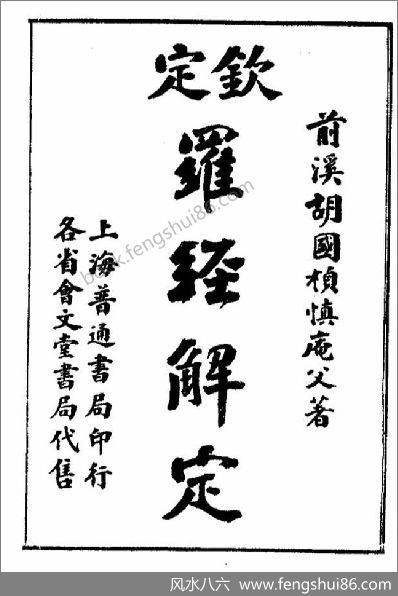 前溪胡國楨慎庵父著
欽定
羅經解定
上海普通書局印行
各省會文堂書局代售
book.fengshui86.com
风水八六 www.fengshui86.com